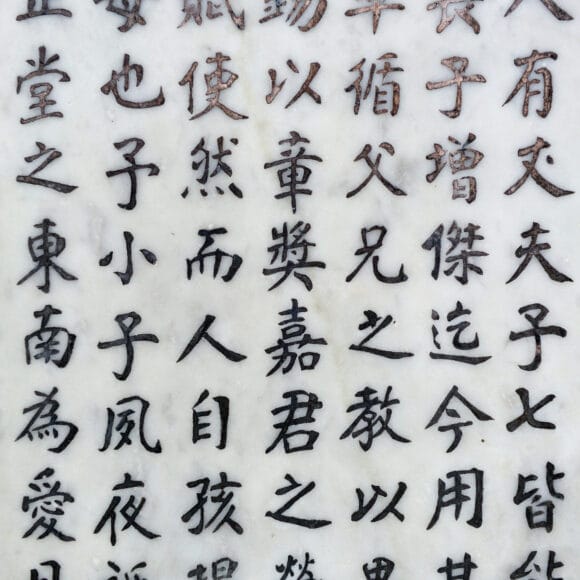 人有丈夫子七皆能
子增傑迄今用其
率循父兄之教以
錫以章獎嘉君之
賦使然而人自孩提
母也予小子夙夜
正堂之東南為愛日